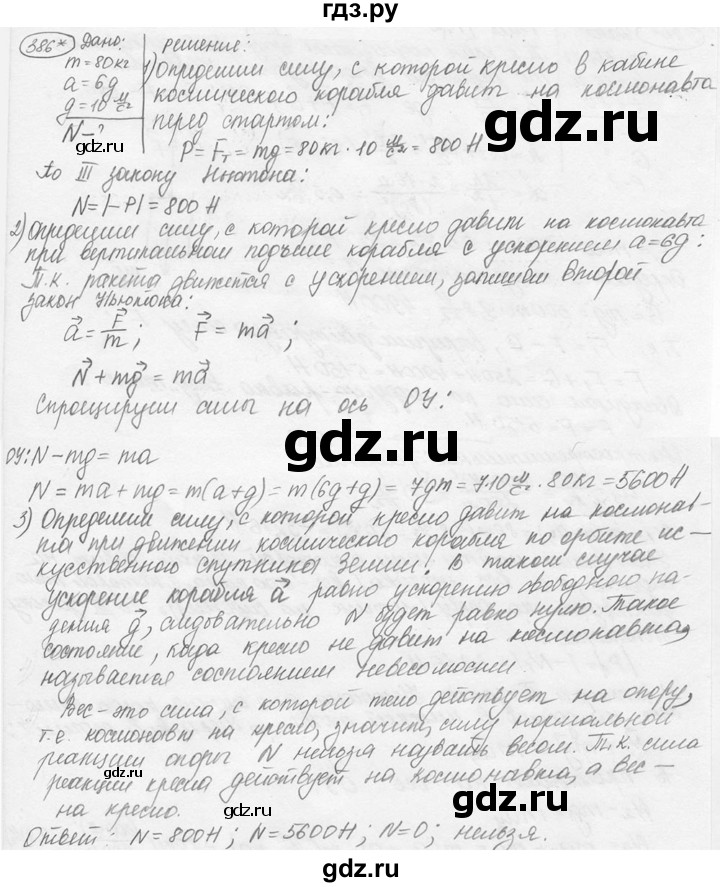 гдз.ру
386* Дано: Решение:
m=80кг 1) Определим силу, с которой кресло в кабине
a=6g космического корабля давит на космонавта
g=10 м/с² перед стартом:
N-? P=Fт=mg=80кг·10 м/с²=800 Н
По III закону Ньютона:
N=|-P|=800 Н
2) Определим силу, с которой кресло давит на космонавта
при вертикальном подъёме корабля с ускорением a=6g:
Т.к. ракета движется с ускорением, запишем второй
закон Ньютона:
a⃗=F⃗/m; F⃗=ma⃗;
N⃗+mg⃗=ma⃗
Спроецируем силы на ось OY:
OY: N-mg=ma
N=ma+mg=m(a+g)=m(6g+g)=7gm=7·10 м/с²·80кг=5600Н
3) Определим силу, с которой кресло давит на космонав-
та при движении космического корабля по орбите ис-
кусственного спутника Земли. В таком случае
ускорение корабля a⃗ равно ускорению свободного па-
дения g⃗, следовательно N будет равно нулю. Такое
состояние, когда кресло не давит на космонавта,
называется состоянием невесомости.
Вес-это сила, с которой тело действует на опору,
т.е. космонавт на кресло, значит, силу нормальной
реакции опоры N нельзя назвать весом. Т.к. сила
реакции кресла действует на космонавта, а вес-
на кресло.
Ответ: N=800Н; N=5600Н; N=0; нельзя.
gdz.ru
gdz.ru
gdz.ru
gdz.ru
gdz.ru
gdz.ru
gdz.ru
gdz.ru